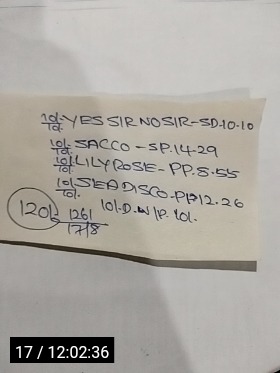 10/-/10/- YES SIR NO SIR-SD.10.10
10/-/10/- SACCO-SP.14.29
10/-/10/- LILY ROSE-PP.8.55
10/-/10/- SEADISCO-P 12.26
10/- D.W/P. 10/-
120/- 1261
1718
17 / 12:02:36